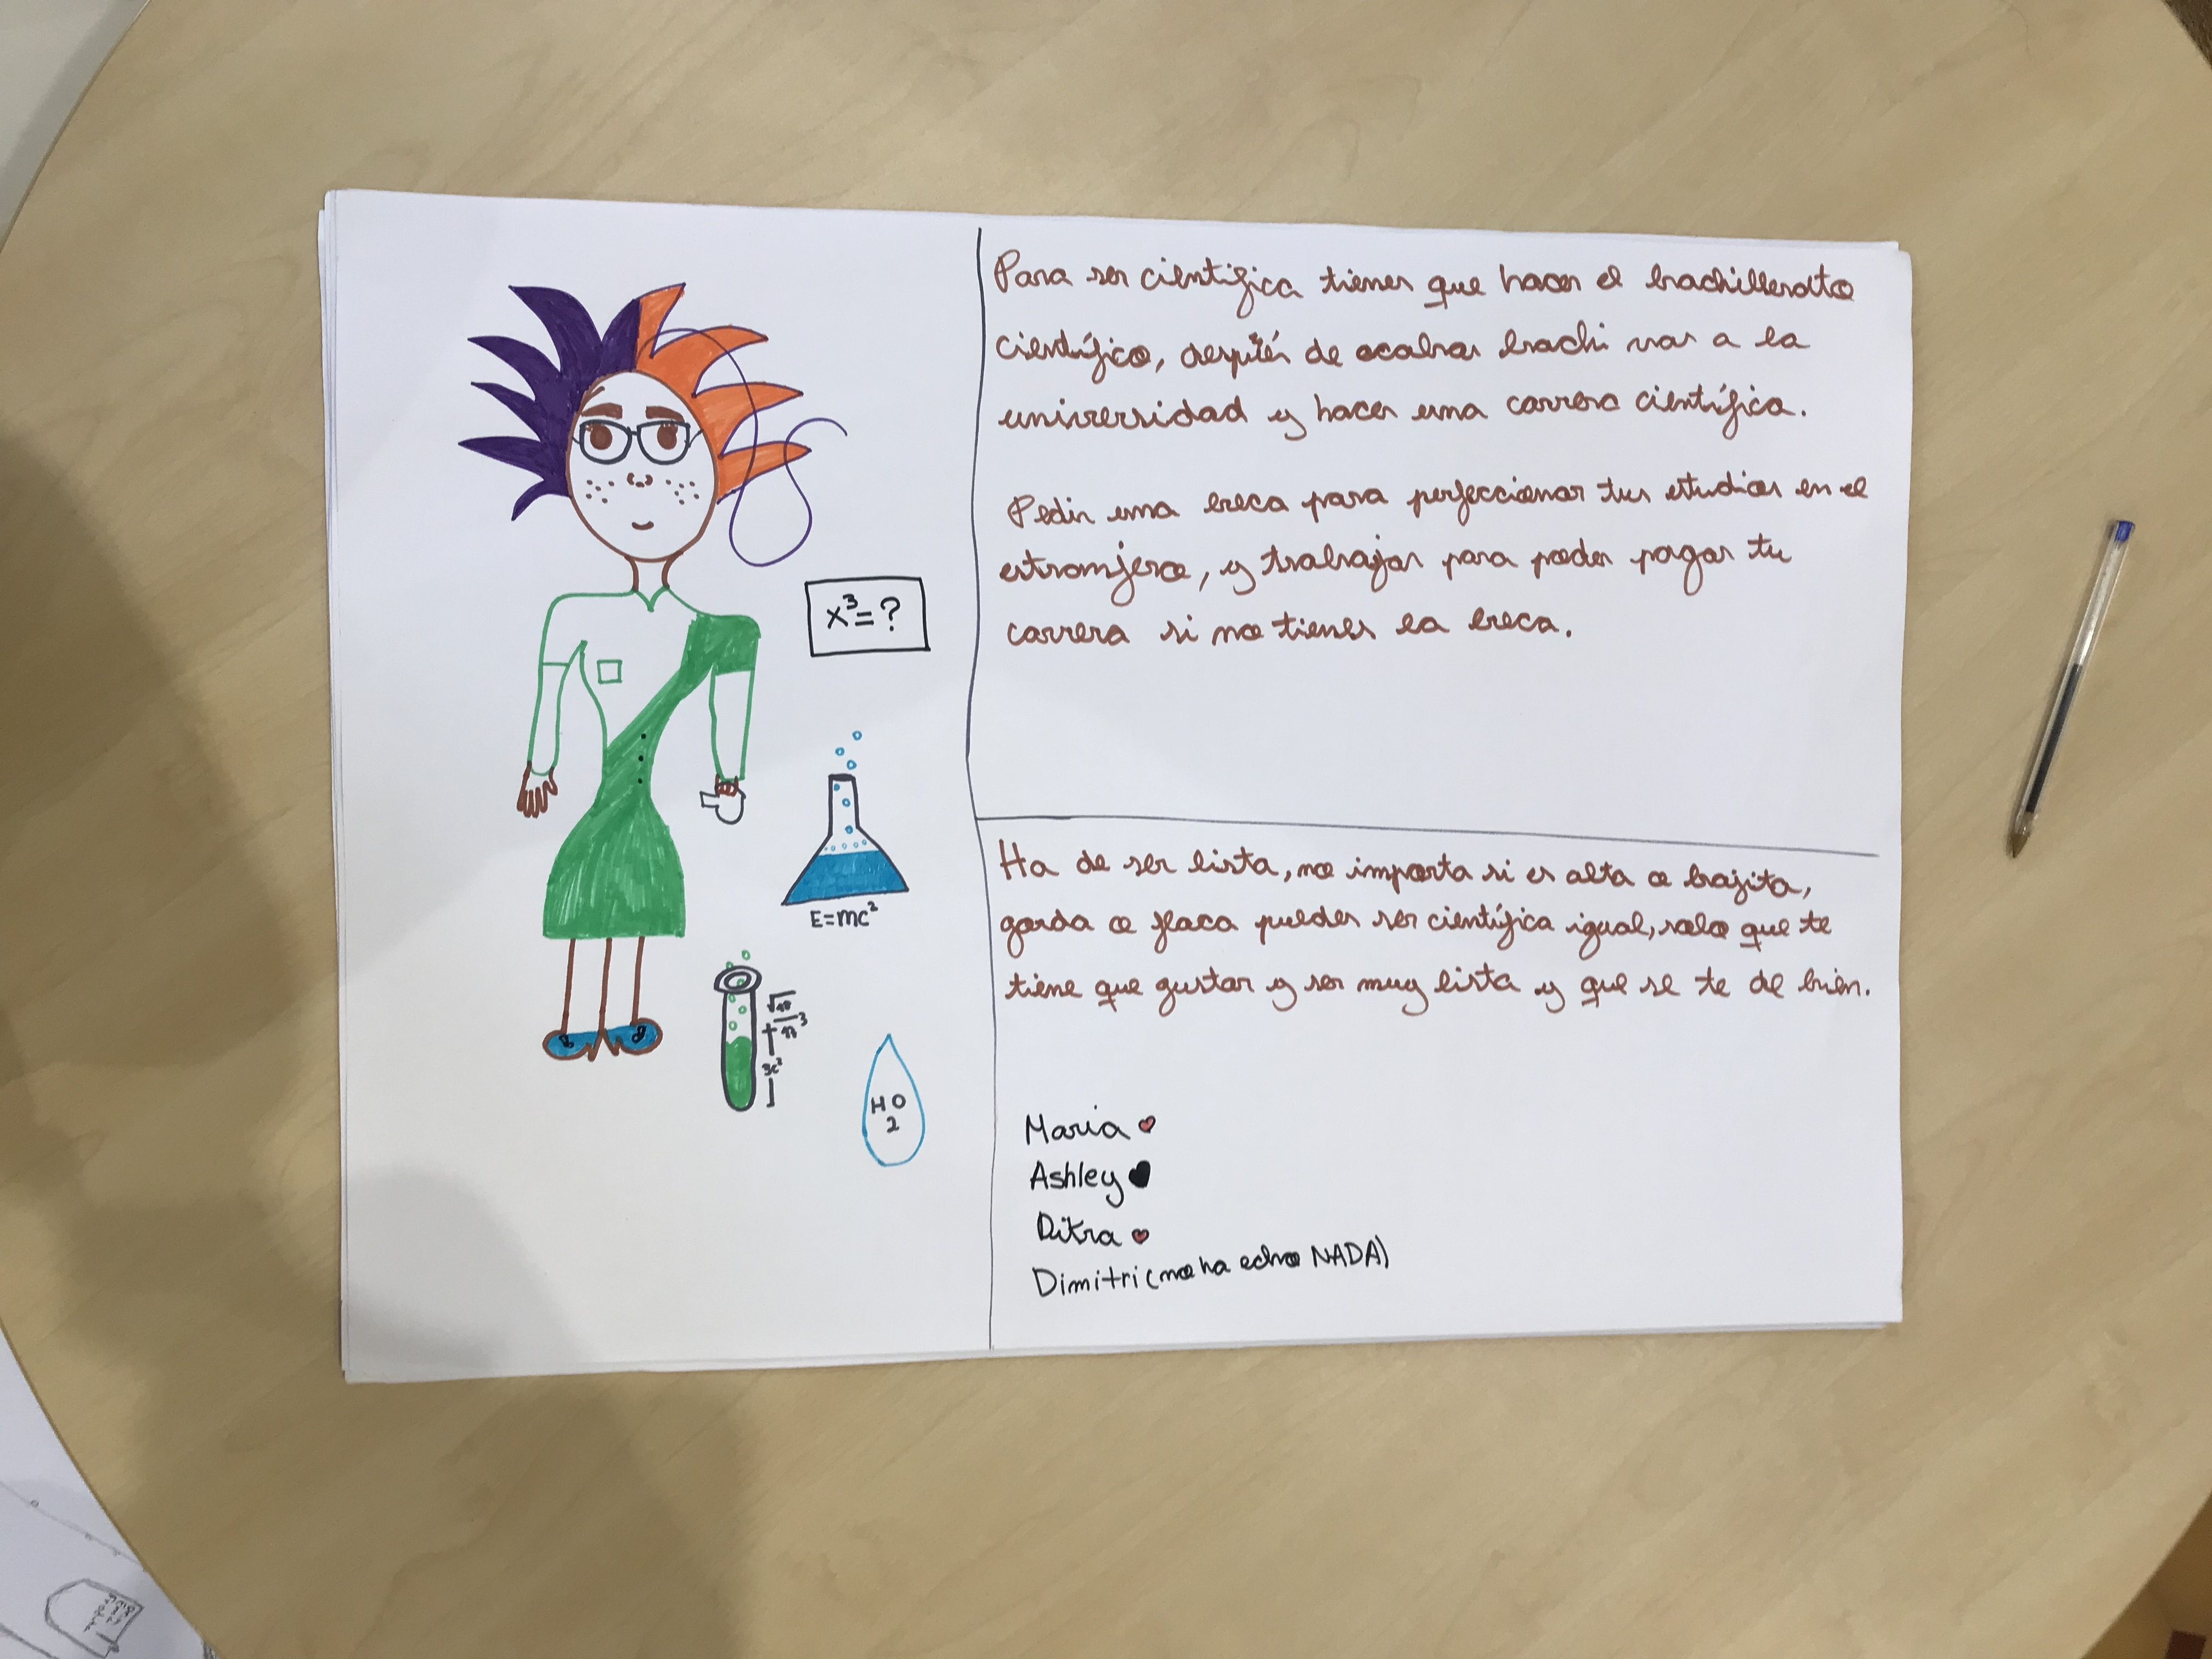 Para ser cientifica tienes que hacer el bachillerato
científico, después de acabar bachi vas a la
universidad y hacer una carrera científica.
Pedir una beca para perfeccionar tus estudios en el
extranjero, y trabajar para poder pagar tu
carrera si no tienes la beca.
Ha de ser lista, no importa si es alta o bajita,
gorda o flaca puedes ser científica igual, solo que te
tiene que gustar y ser muy lista y que se te de bien.
Maria
Ashley
Ditra
Dimitri (no ha echo NADA)
x³=?
E=mc²
3c²
HO
2